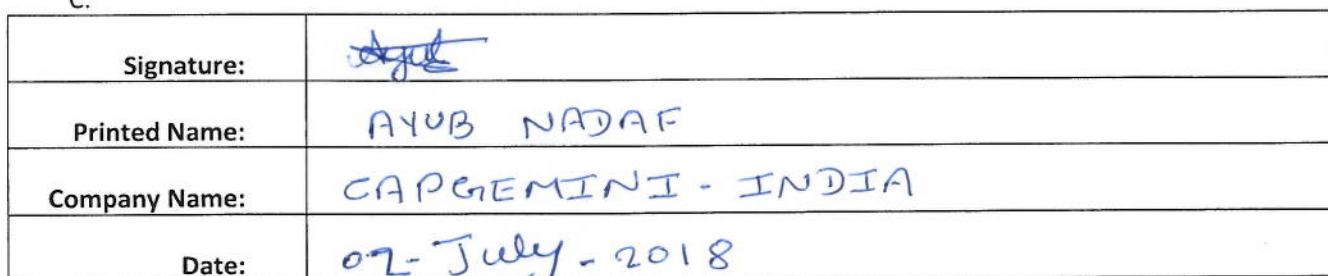 C.
Signature: Ayub
Printed Name: AYUB NADAF
Company Name: CAPGEMINI - INDIA
Date: 02-July-2018